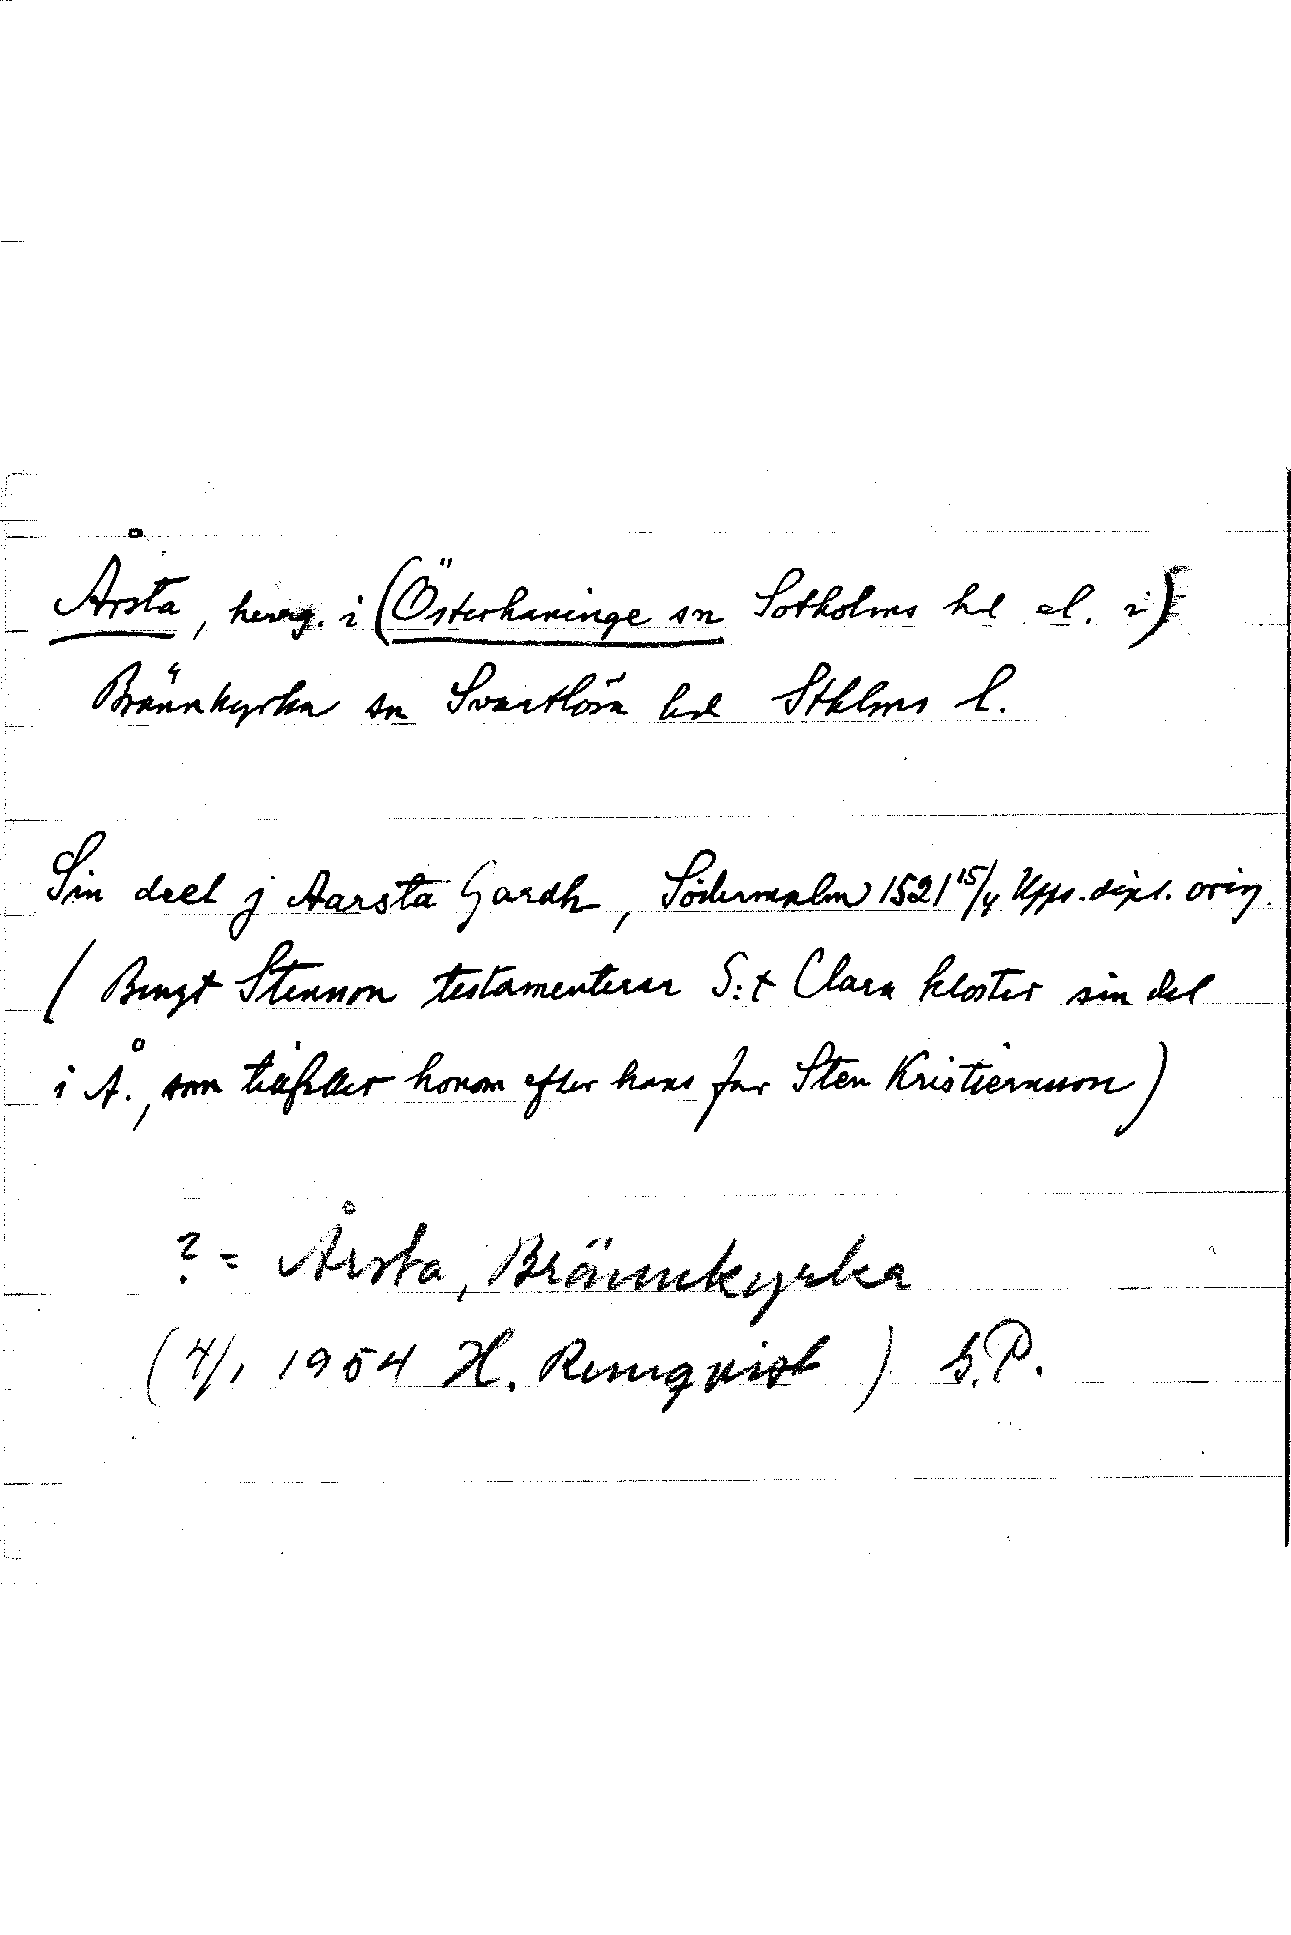 Årsta, herrg. i (Österhaninge sn Sotholms hd el. i)
Brännkyrka sn Svartlösa hd Sthlms l.
Sin deel j Aarsta Gardh, Södermalm 1521 15/4 Upps. dipl. orig.
(Bengt Stensson testamenterar S:t Clara kloster sin del
i Å., som tillfaller honom efter hans far Sten Kristiernsson)
? = Årsta, Brännkyrka
(4/1 1954 H. Remqvist) G.P.